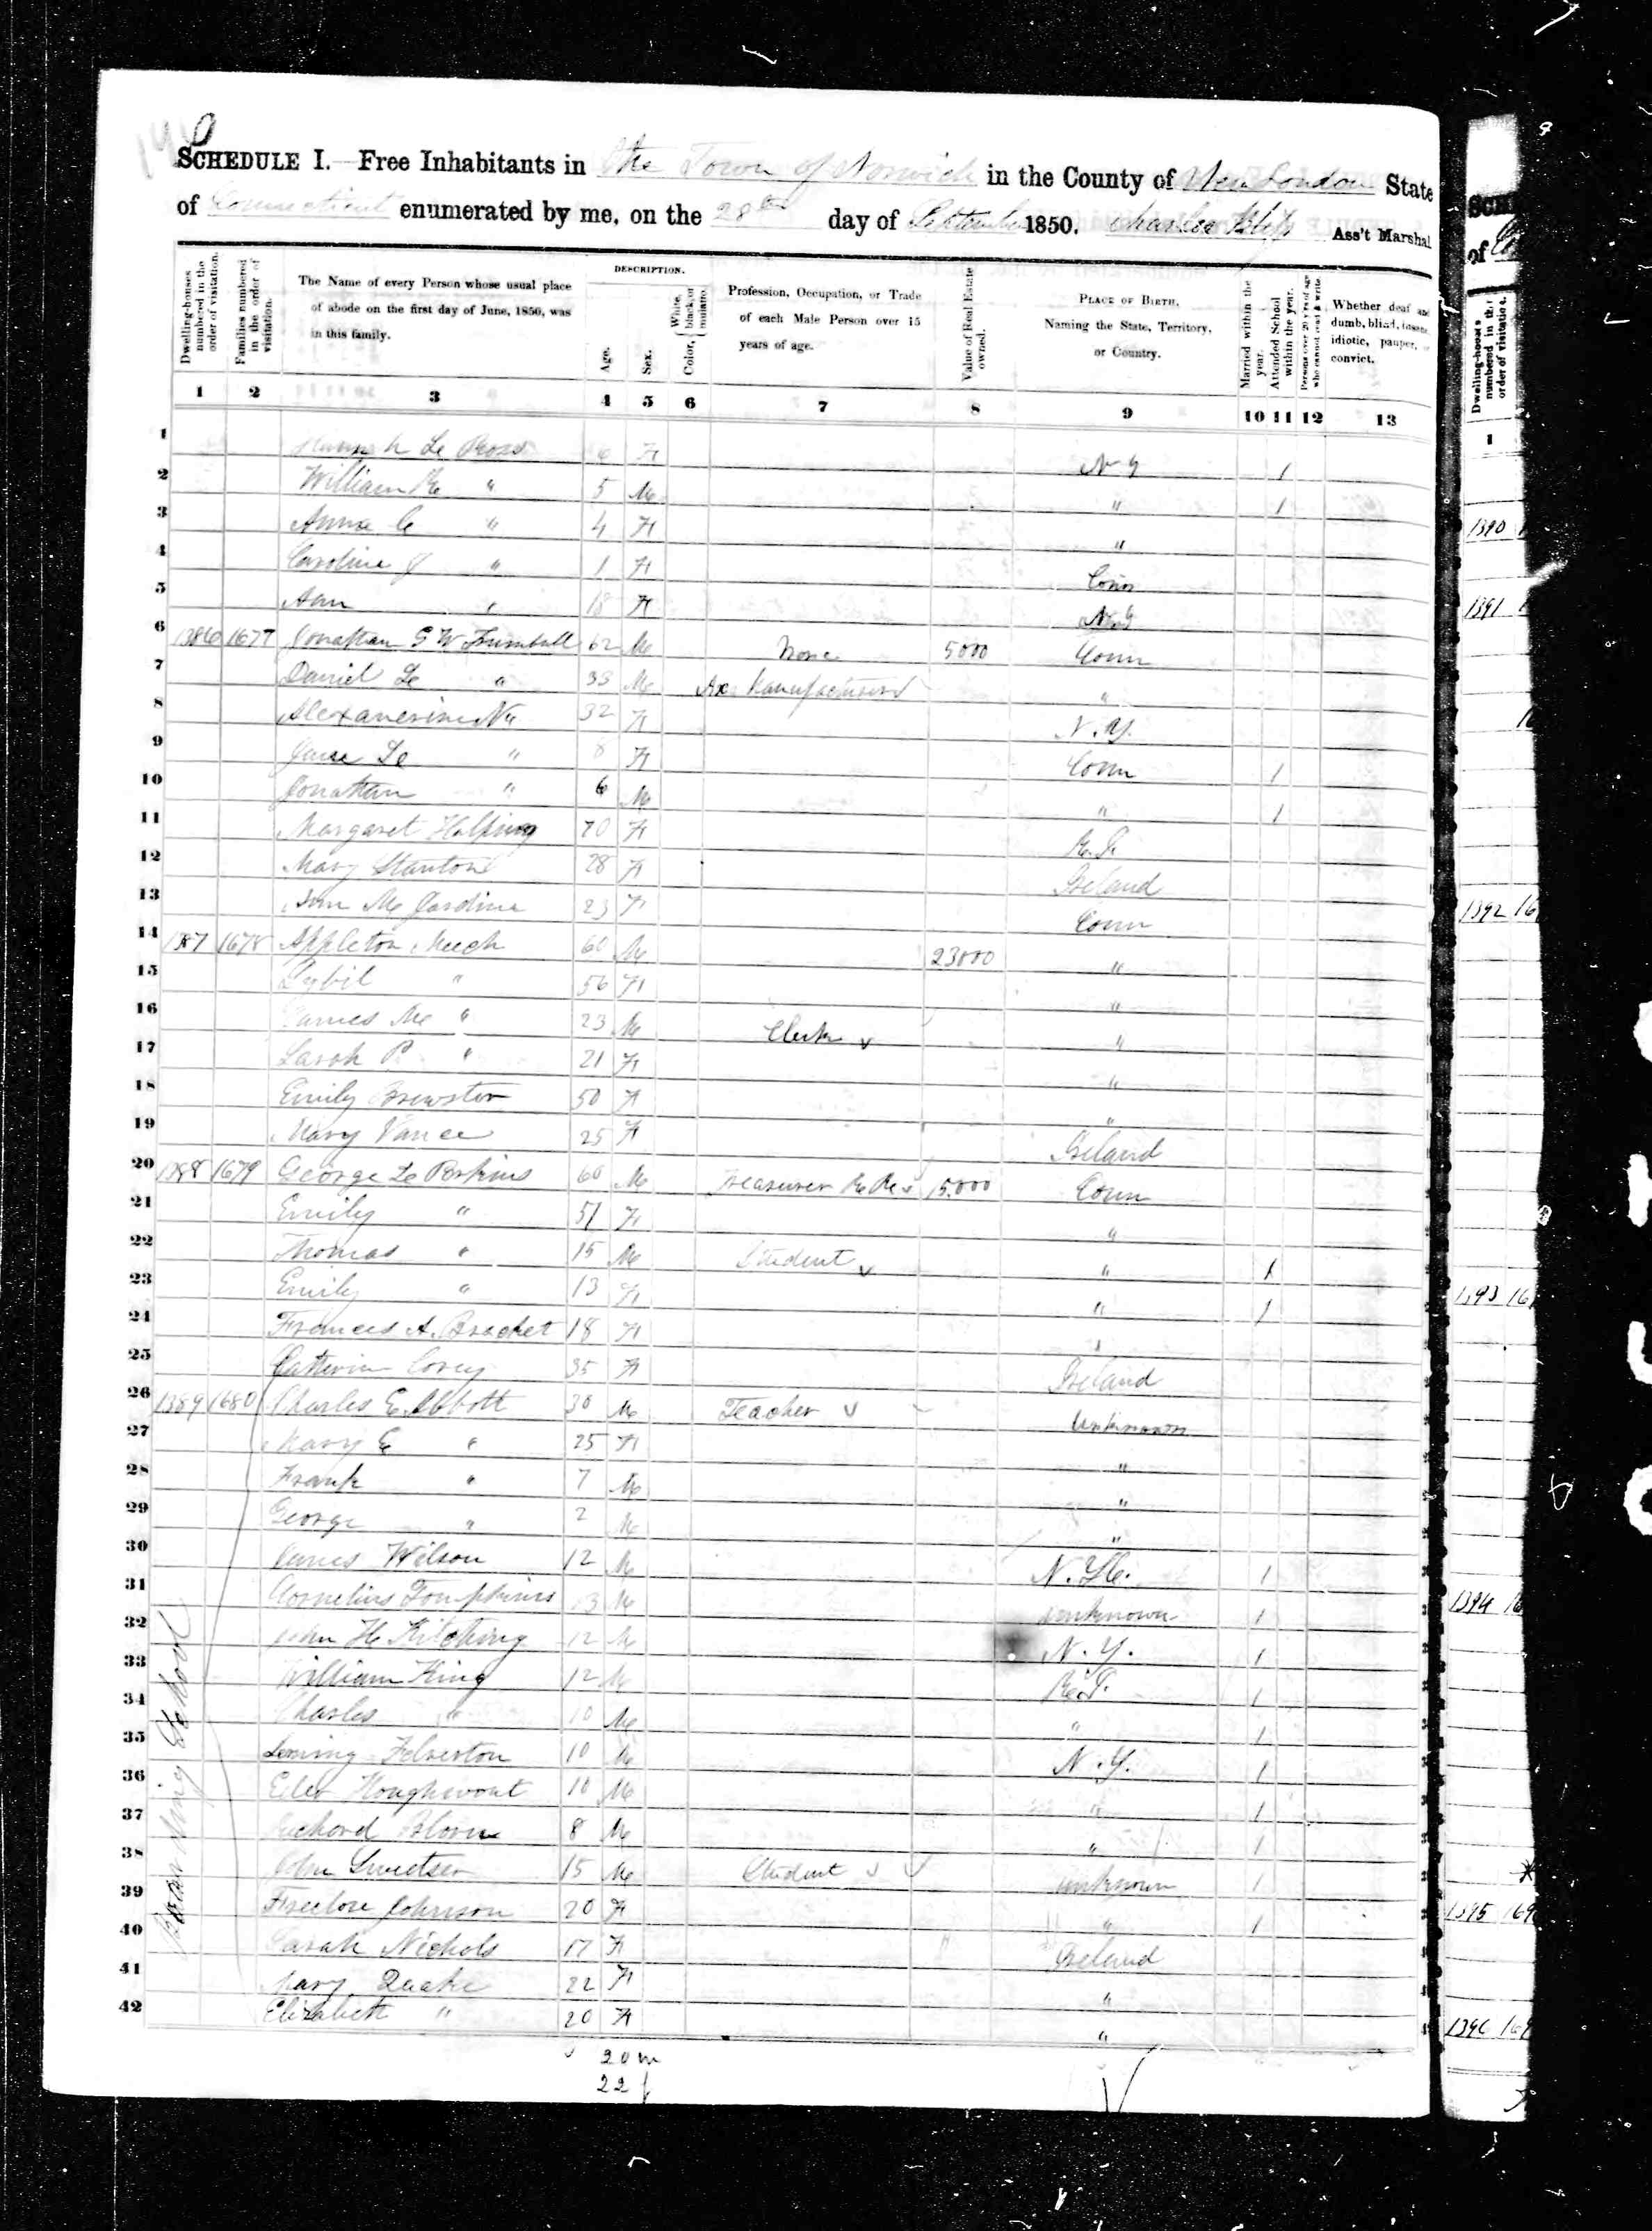 SCHEDULE I.—Free Inhabitants in the Town of Norwich in the County of New London State
of Connecticut enumerated by me, on the 28th day of September 1850. Charles Ass't Marshal
Dwelling-houses numbered in the order of visitation.
Families numbered in the order of visitation.
The Name of every Person whose usual place of abode on the first day of June, 1850, was in this family.
DESCRIPTION.
Age.
Sex.
Color, { White, black, or mulatto.
Profession, Occupation, or Trade of each Male Person over 15 years of age.
Value of Real Estate owned.
PLACE OF BIRTH, Naming the State, Territory, or Country.
Married within the year.
Attended School within the year.
Persons over 20 years of age who cannot read & write
Whether deaf and dumb, blind, insane, idiotic, pauper, or convict.
1 2 3 4 5 6 7 8 9 10 11 12 13
1 Ross 6 F N Y 1
2 William " 5 M " 1
3 Anna C " 4 F "
4 Caroline " 1 F Conn
5 Ann " 18 F N Y
6 1386 1677 Jonathan G W Trumbull 62 M None 5000 Conn
7 Daniel L " 33 M Ax Manufacturer "
8 N " 32 F N. Y.
9 Jane L " 8 F Conn 1
10 Jonathan " 6 M " 1
11 Margaret 70 F R. I.
12 Mary Stanton 28 F Ireland
13 Ann M Jardine 23 F Conn
14 1387 1678 Appleton Meech 60 M 23000 "
15 Sybil " 56 F "
16 James M " 23 M Clerk "
17 Sarah P " 21 F "
18 Emily Brewster 50 F "
19 Mary Vance 25 F Ireland
20 1388 1679 George L Perkins 60 M Treasurer R R 15.000 Conn
21 Emily " 51 F "
22 Thomas " 15 M Student " 1
23 Emily " 13 F " 1
24 Frances A. Brachet 18 F "
25 Catherine Corey 35 F Ireland
26 1389 1680 Charles E. Abbott 30 M Teacher Unknown
27 Mary E " 25 F "
28 Frank " 7 M "
29 George " 2 M "
30 James Wilson 12 M N. Y C. 1
31 Cornelius Tompkins 13 M unknown 1
32 John H Kitching 12 M N. Y. 1
33 William King 12 M R. I. 1
34 Charles " 10 M " 1
35 10 M N. Y. 1
36 Houghwout 10 M " 1
37 Richard 8 M " 1
38 John Smetser 15 M Student unknown 1
39 Freelove Johnson 20 F " 1
40 Sarah Nichols 17 F Ireland
41 Mary Quake 22 F "
42 Elizabeth " 20 F "
Boarding School
20 m
22 f
SCH
of
Dwelling-houses numbered in the order of visitation.
1
1390
1391
1392 16
1393 16
1394 16
1395 169
1396 169